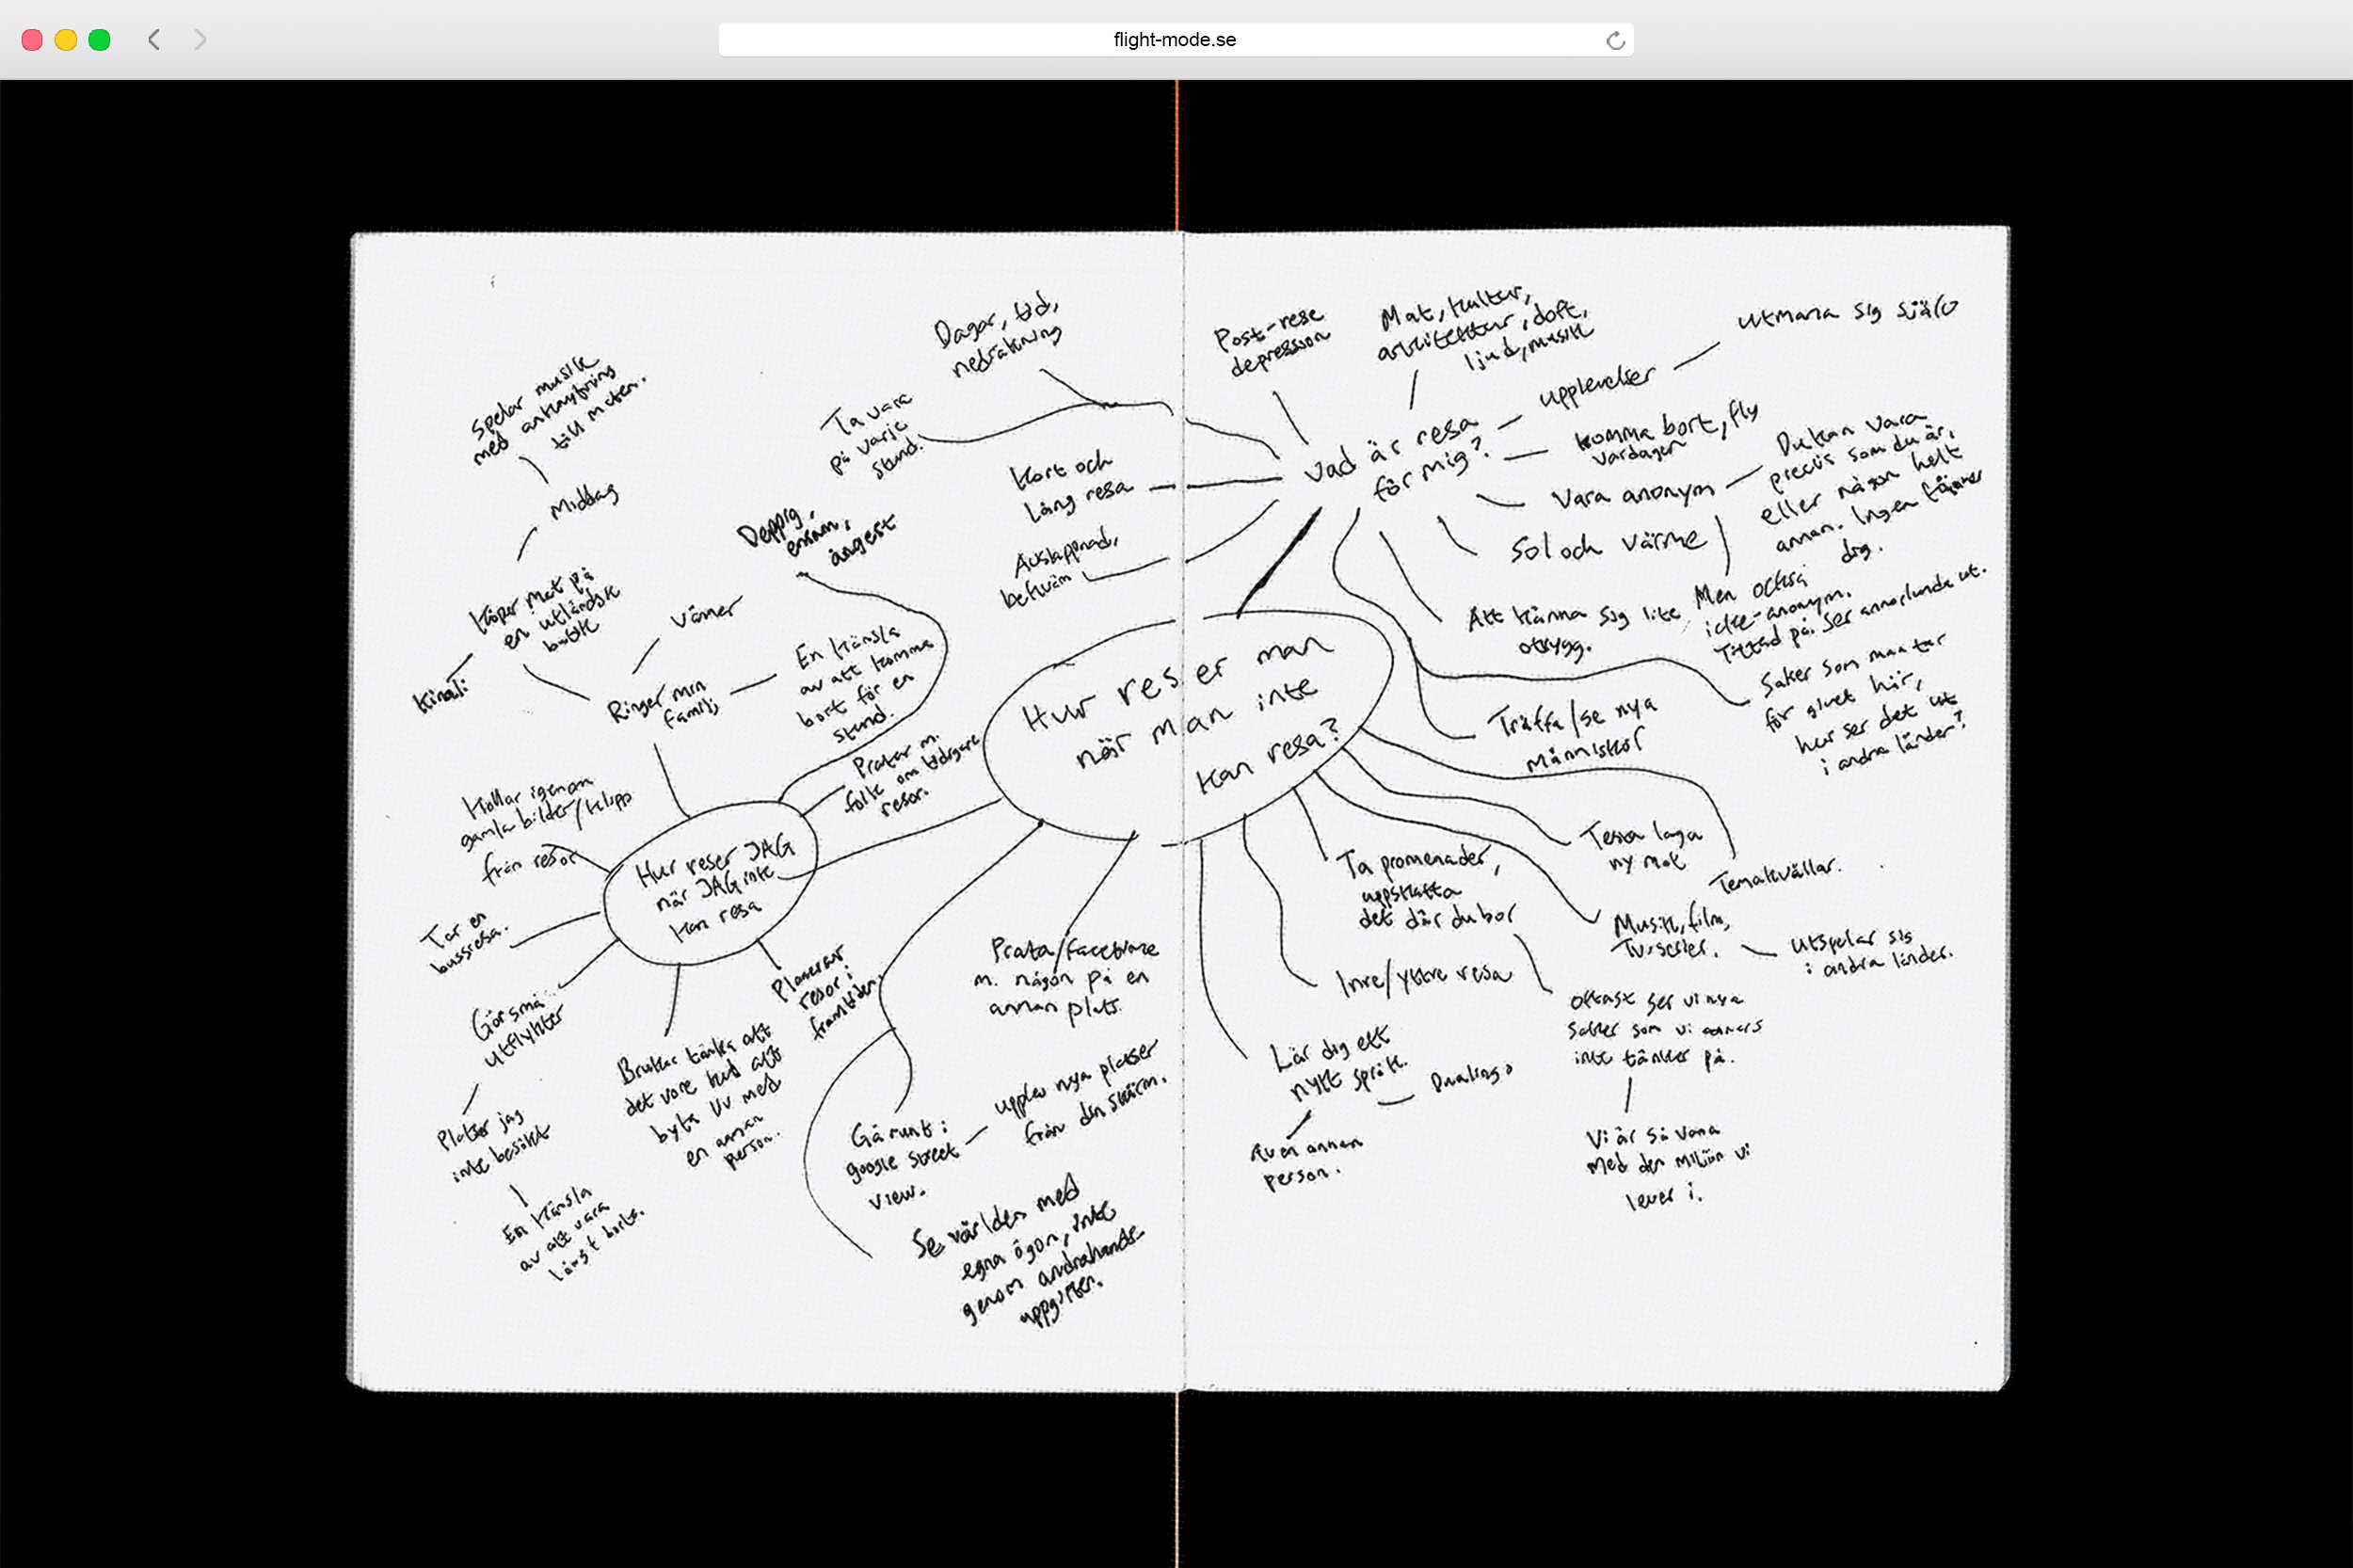 flight-mode.se
Dagar, tid,
nedräkning
Ta vara
på varje
stund.
Spelar musik
med anknytning
till maten.
Middag
Köper mat på
en utländsk
butik
Kinali
Vänner
Ringer min
familj
En känsla
av att komma
bort för en
stund.
Deppig,
ensam,
ångest
Kort och
Lång resa
Avslappnad,
bekväm
Post-rese
depression
Mat, kultur,
arkitektur, doft,
ljud, musik
Vad är resa
för mig?
upplevelser
utmana sig själv
komma bort, fly
vardagen
Vara anonym
Du kan vara
precis som du är,
eller någon helt
annan. Ingen känner
dig.
Sol och värme
Men också
icke-anonym.
Tittad på. Ser annorlunda ut.
Att känna sig lite
otrygg.
Saker som man tar
för givet här,
hur ser det ut
i andra länder?
Träffa/se nya
människor
Hur reser man
när man inte
kan resa?
Pratar m.
folk om tidigare
resor.
Kollar igenom
gamla bilder/klipp
från resor
Hur reser JAG
när JAG inte
kan resa
Tar en
bussresa.
Gör små
utflykter
Platser jag
inte besökt
En känsla
av att vara
långt borta.
Brukar tänka att
det vore kul att
byta liv med
en annan
person.
Planerar
resor i
framtiden
Prata/facetime
m. någon på en
annan plats.
Gå runt i
google street
view.
upplev nya platser
från din skärm.
Se världen med
egna ögon, inte
genom andrahands-
uppgifter.
Testa laga
ny mat
Temakvällar.
Musik, film,
Tv-serier.
Utspelar sig
i andra länder.
Ta promenader,
uppskatta
det där du bor
Inre/yttre resa
Oftast ser vi nya
saker som vi annars
inte tänker på.
Vi är så vana
med den miljön vi
lever i.
Lär dig ett
nytt språk.
Duolingo
Av en annan
person.